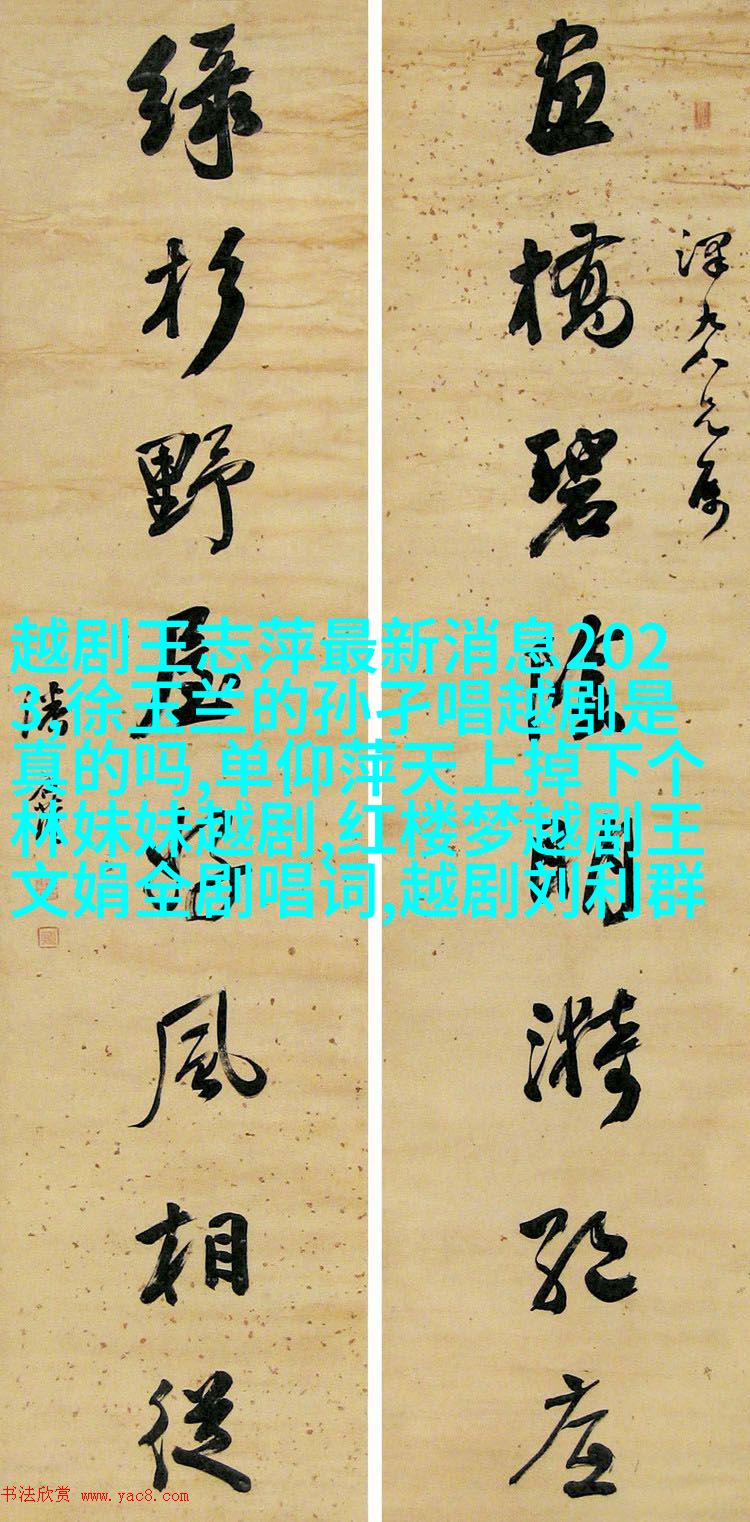 畫橋碧陰明漪絕底
綠杉野屋好風相從
越剧王志萍最新消息202
3,徐玉兰的孙子唱越剧是
真的吗,单仰萍天上掉下个
林妹妹越剧,红楼梦越剧王
文娟全剧唱词,越剧刘利群
书法欣赏 www.yac8.com